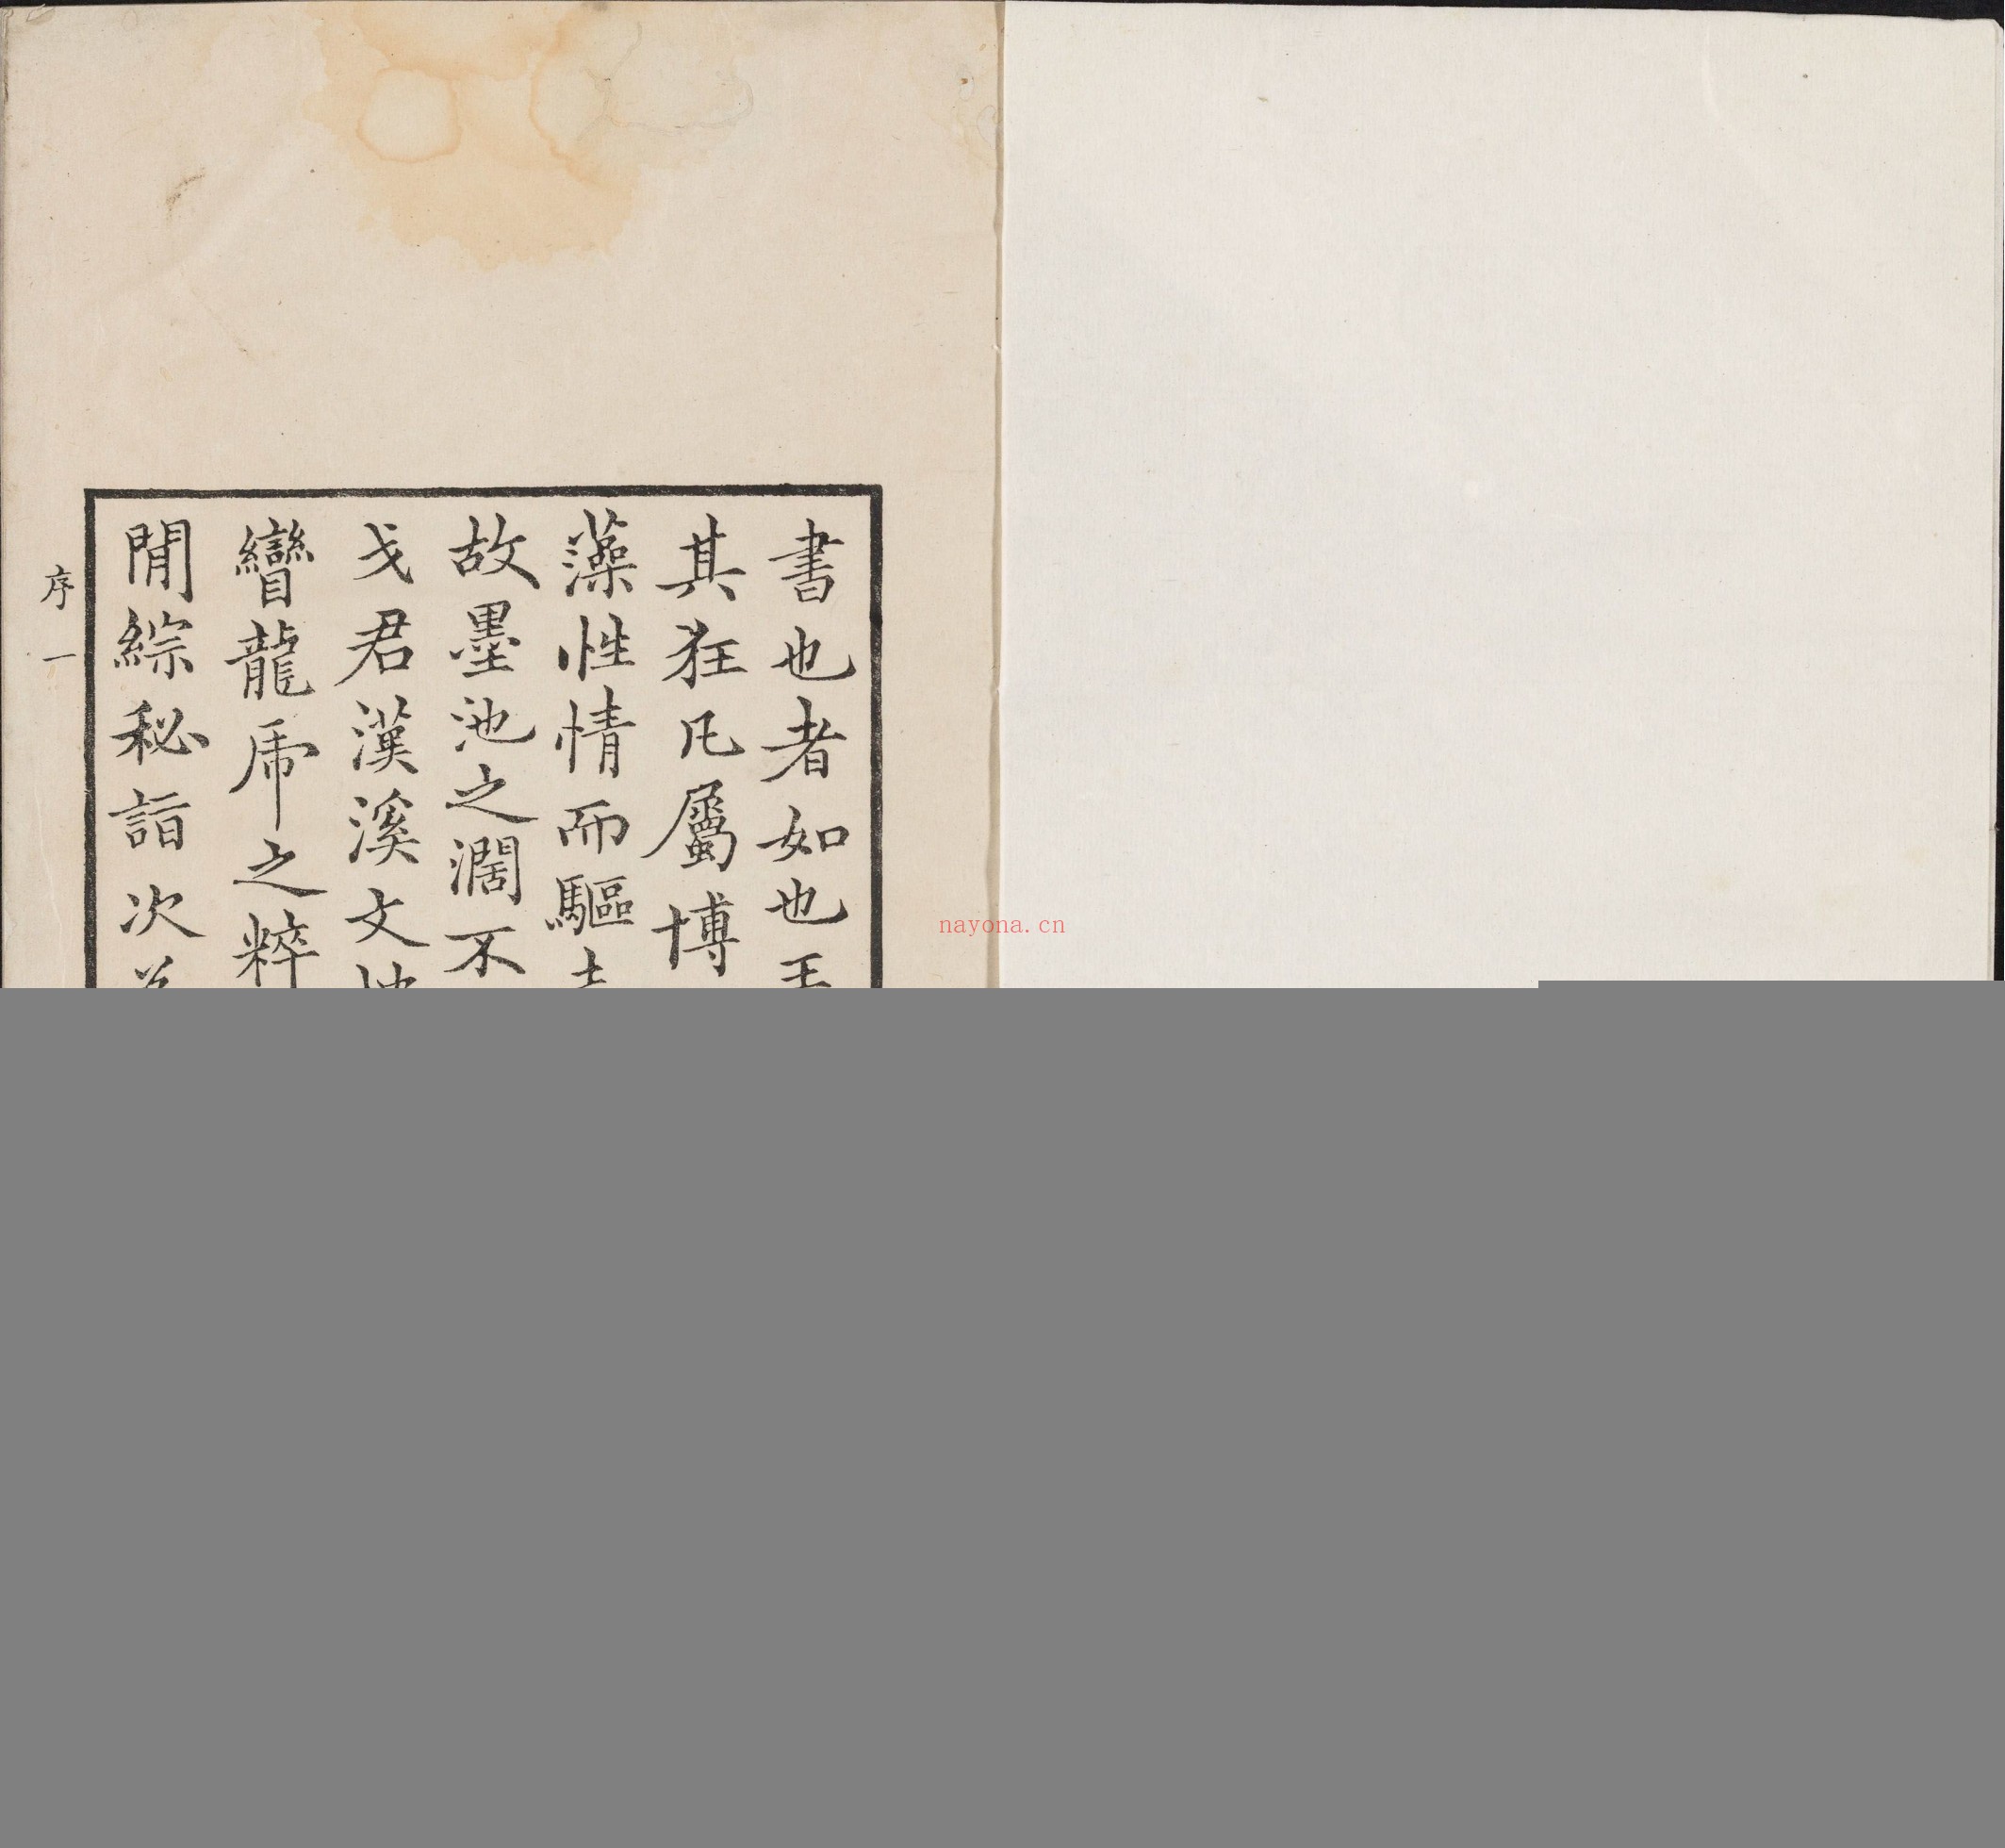 書也者如也
其狂凡屬博
藻性情而驅
故墨池之濶不
戈君漢溪文
龍虎之粹
閒綜秘詣次
序 一
nayona.cn